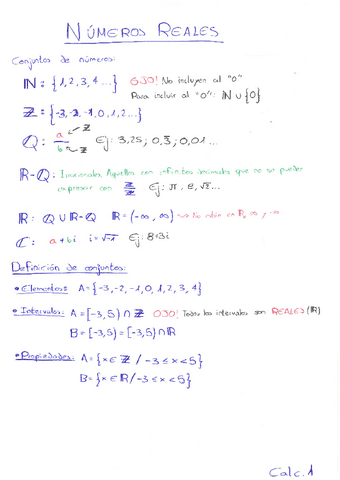 NÚMEROS REALES
Conjuntos de números:
ℕ: {1, 2, 3, 4 ...} OJO! No incluyen al "0"
Para incluir al "0": ℕ ∪ {0}
ℤ = {-3, -2, -1, 0, 1, 2 ...}
ℚ: a/b ℤ ℤ Ej: 3,25; 0,3; 0,01 ...
ℝ-ℚ: Irracionales. Aquellos con infinitos decimales que no se pueden
expresar con ℤ/ℤ Ej: π, e, √2 ...
ℝ: ℚ ∪ ℝ-ℚ ℝ = (-∞, ∞) → No están en ℝ, ∞ y -∞
ℂ: a + bi i = √-1 Ej: 8+3i
Definición de conjuntos:
• Elementos: A = {-3, -2, -1, 0, 1, 2, 3, 4}
• Intervalos: A = [-3, 5) ∩ ℤ OJO! Todos los intervalos son REALES (ℝ)
B = [-3, 5) = [-3, 5) ∩ ℝ
• Propiedades: A = {x ∈ ℤ / -3 ≤ x < 5}
B = {x ∈ ℝ / -3 ≤ x < 5}
Calc. 1